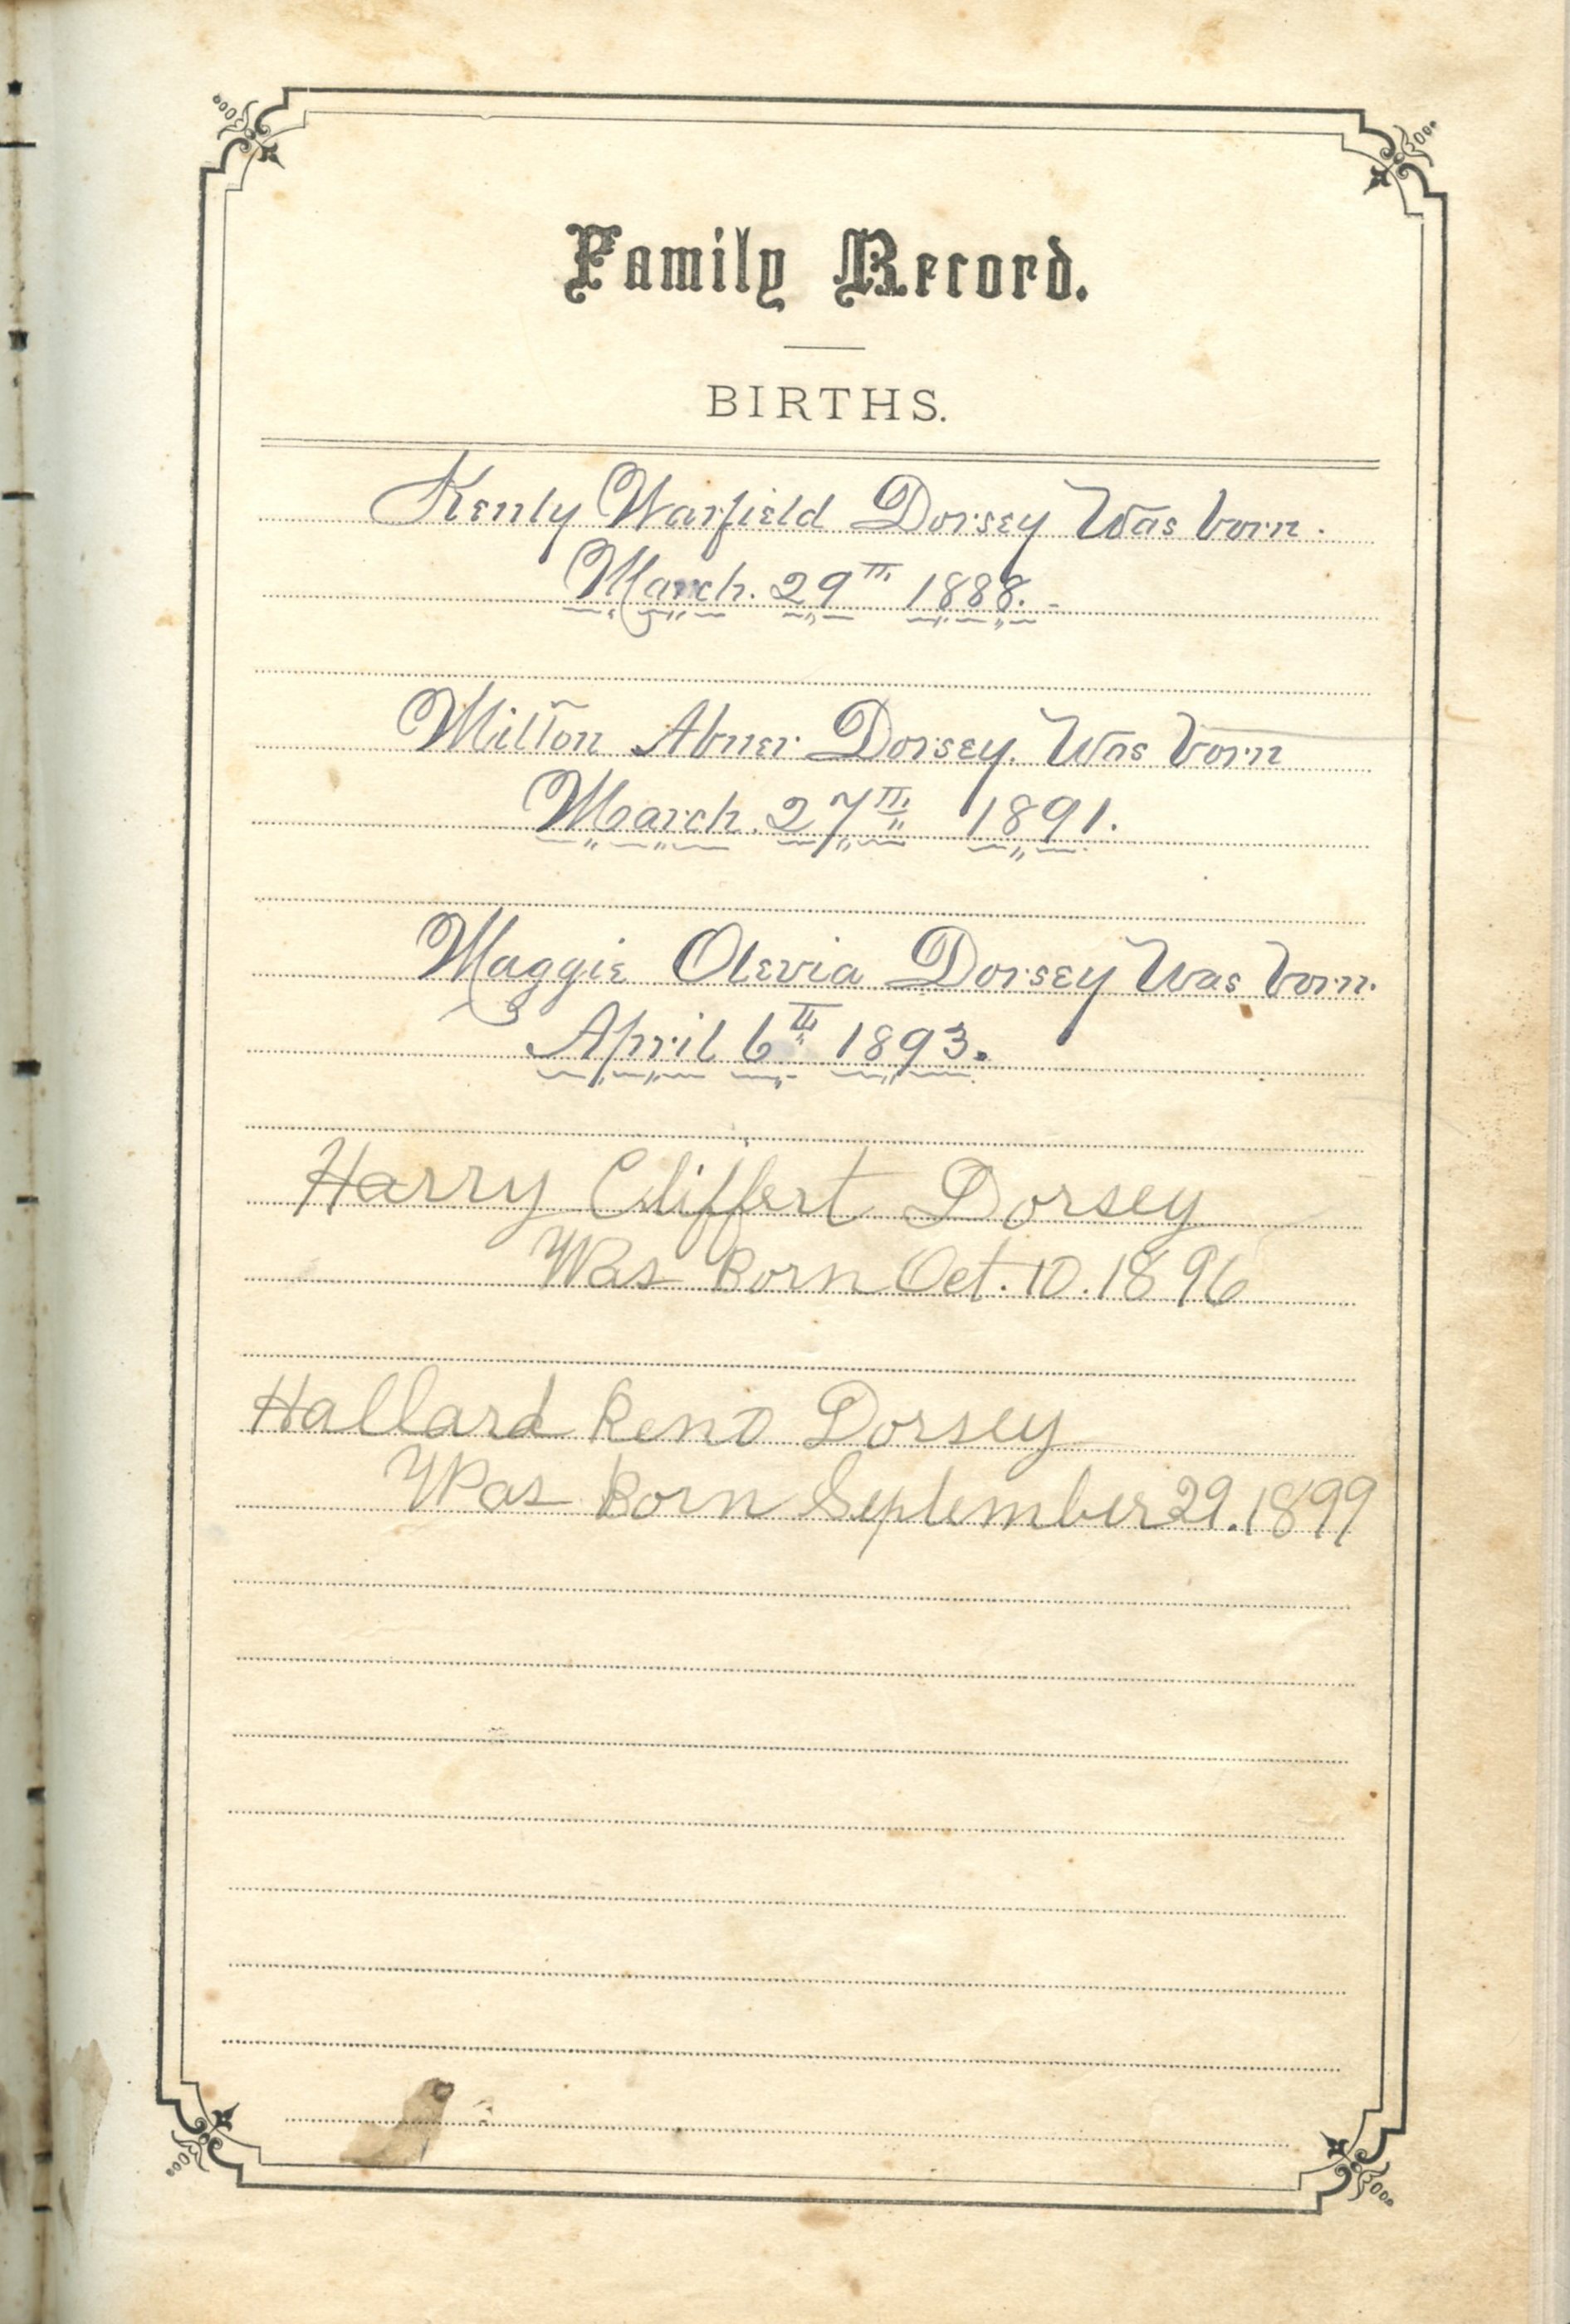 Family Record.
BIRTHS.
Kenly Warfield Dorsey Was born.
March. 29th 1888.
Milton Abner Dorsey. Was born
March. 27th 1891.
Maggie Olevia Dorsey Was born.
April 6th 1893.
Harry Cliffert Dorsey
Was Born Oct. 10. 1896
Hallard Reno Dorsey
Was Born September 29. 1899